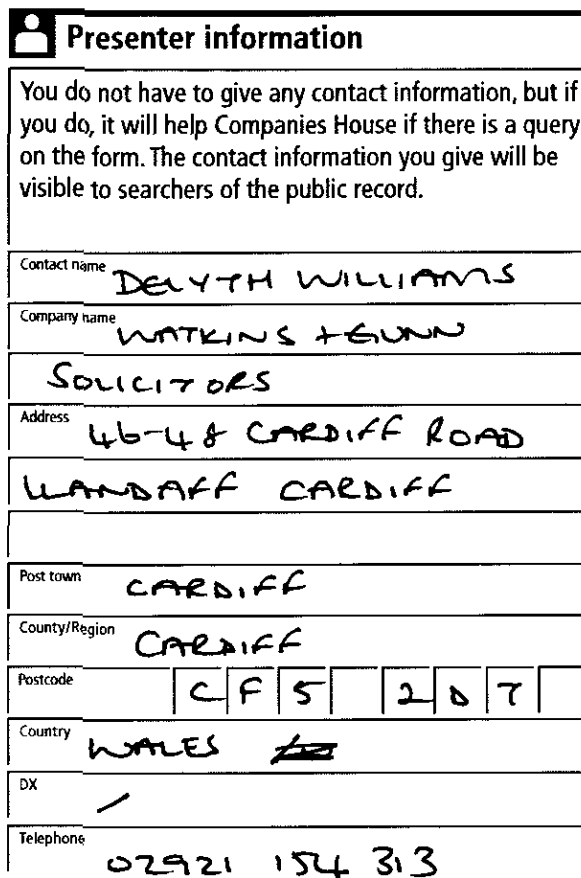 Presenter information
You do not have to give any contact information, but if
you do, it will help Companies House if there is a query
on the form. The contact information you give will be
visible to searchers of the public record.
Contact name DELYTH WILLIAMS
Company name WATKINS + GUNN
SOLICITORS
Address 46-48 CARDIFF ROAD
LLANDAFF CARDIFF
Post town CARDIFF
County/Region CARDIFF
Postcode CF5 2DT
Country WALES
DX /
Telephone 02921 154 313